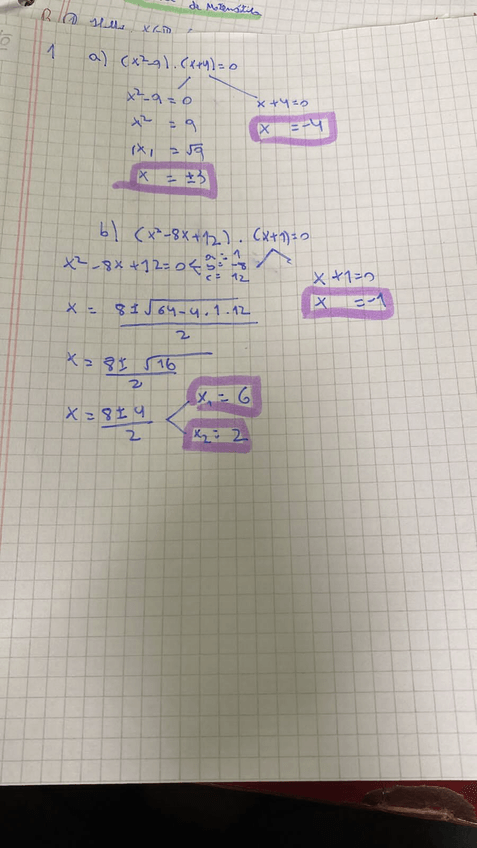 de Matemática
1 a) (x²-9).(x+4)=0
x²-9=0
x+4=0
x² = 9
x = -4
|x| = √9
x = ±3
b) (x²-8x+12).(x+1)=0
x²-8x+12=0
a=1
b=-8
c=12
x+1=0
x = -1
x = 8±√64-4.1.12
2
x = 8± √16
2
x = 8±4
2
x₁ = 6
x₂ = 2